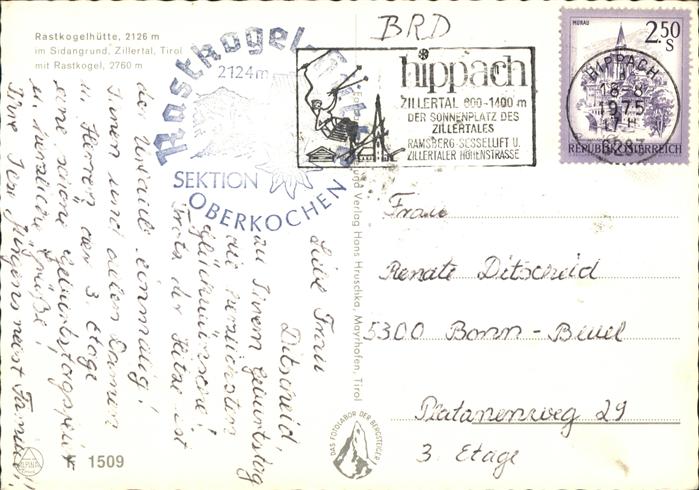 Rastkogelhütte, 2126 m
im Sidangrund, Zillertal, Tirol
mit Rastkogel, 2760 m
Rastkogel-Hütte
2124m
SEKTION
OBERKOCHEN
BRD
hippach
ZILLERTAL 600-1400 m
DER SONNENPLATZ DES
ZILLERTALES
RAMSBERG-SESSELLIFT U.
ZILLERTALER HÖHENSTRASSE
MURAU
2.50
S
HIPPACH
18-8
1975
17-H
6283
REPUBLIK ÖSTERREICH
Liebe Frau
Ditscheid,
zu Ihrem Geburtstag
die herzlichsten
Glückwünsche!
Trotz der Hitze ist
der Urlaub einmalig!
Ihnen und allen Damen
u. Herren der 3. Etage
eine schöne Geburtstagsfeier
u. herzliche Grüße!
Ihre Jürgens nebst Familie
und Verlag Hans Hruschka, Mayrhofen, Tirol
Frau
Renate Ditscheid
5300 Bonn-Beuel
Platanenweg 29
3. Etage
DAS FOTOLABOR DER BERGSTEIGER
ALPINA
F 1509